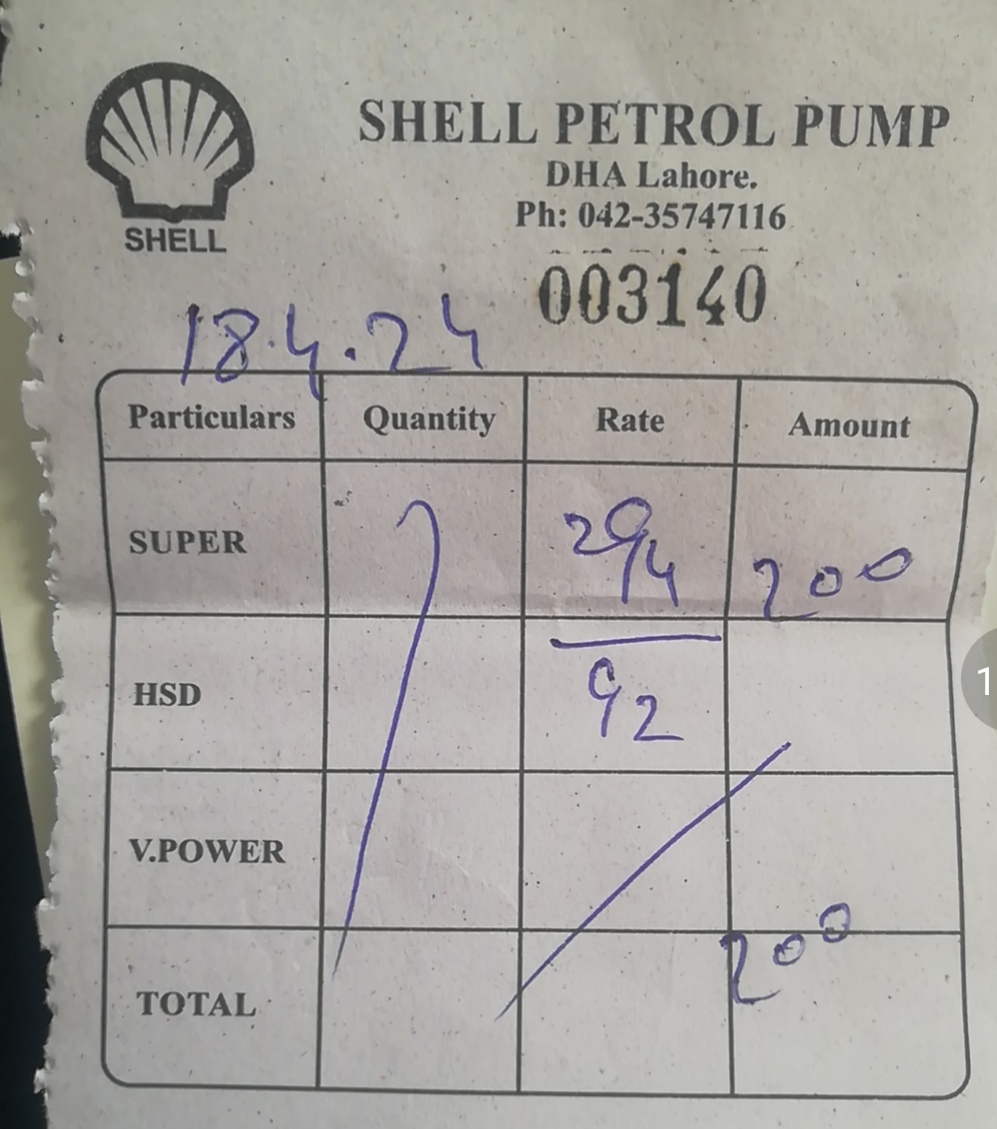 SHELL PETROL PUMP
DHA Lahore.
Ph: 042-35747116
SHELL
003140
18.4.24
Particulars Quantity Rate Amount
SUPER 294 200
HSD 92
V.POWER
TOTAL 200
1